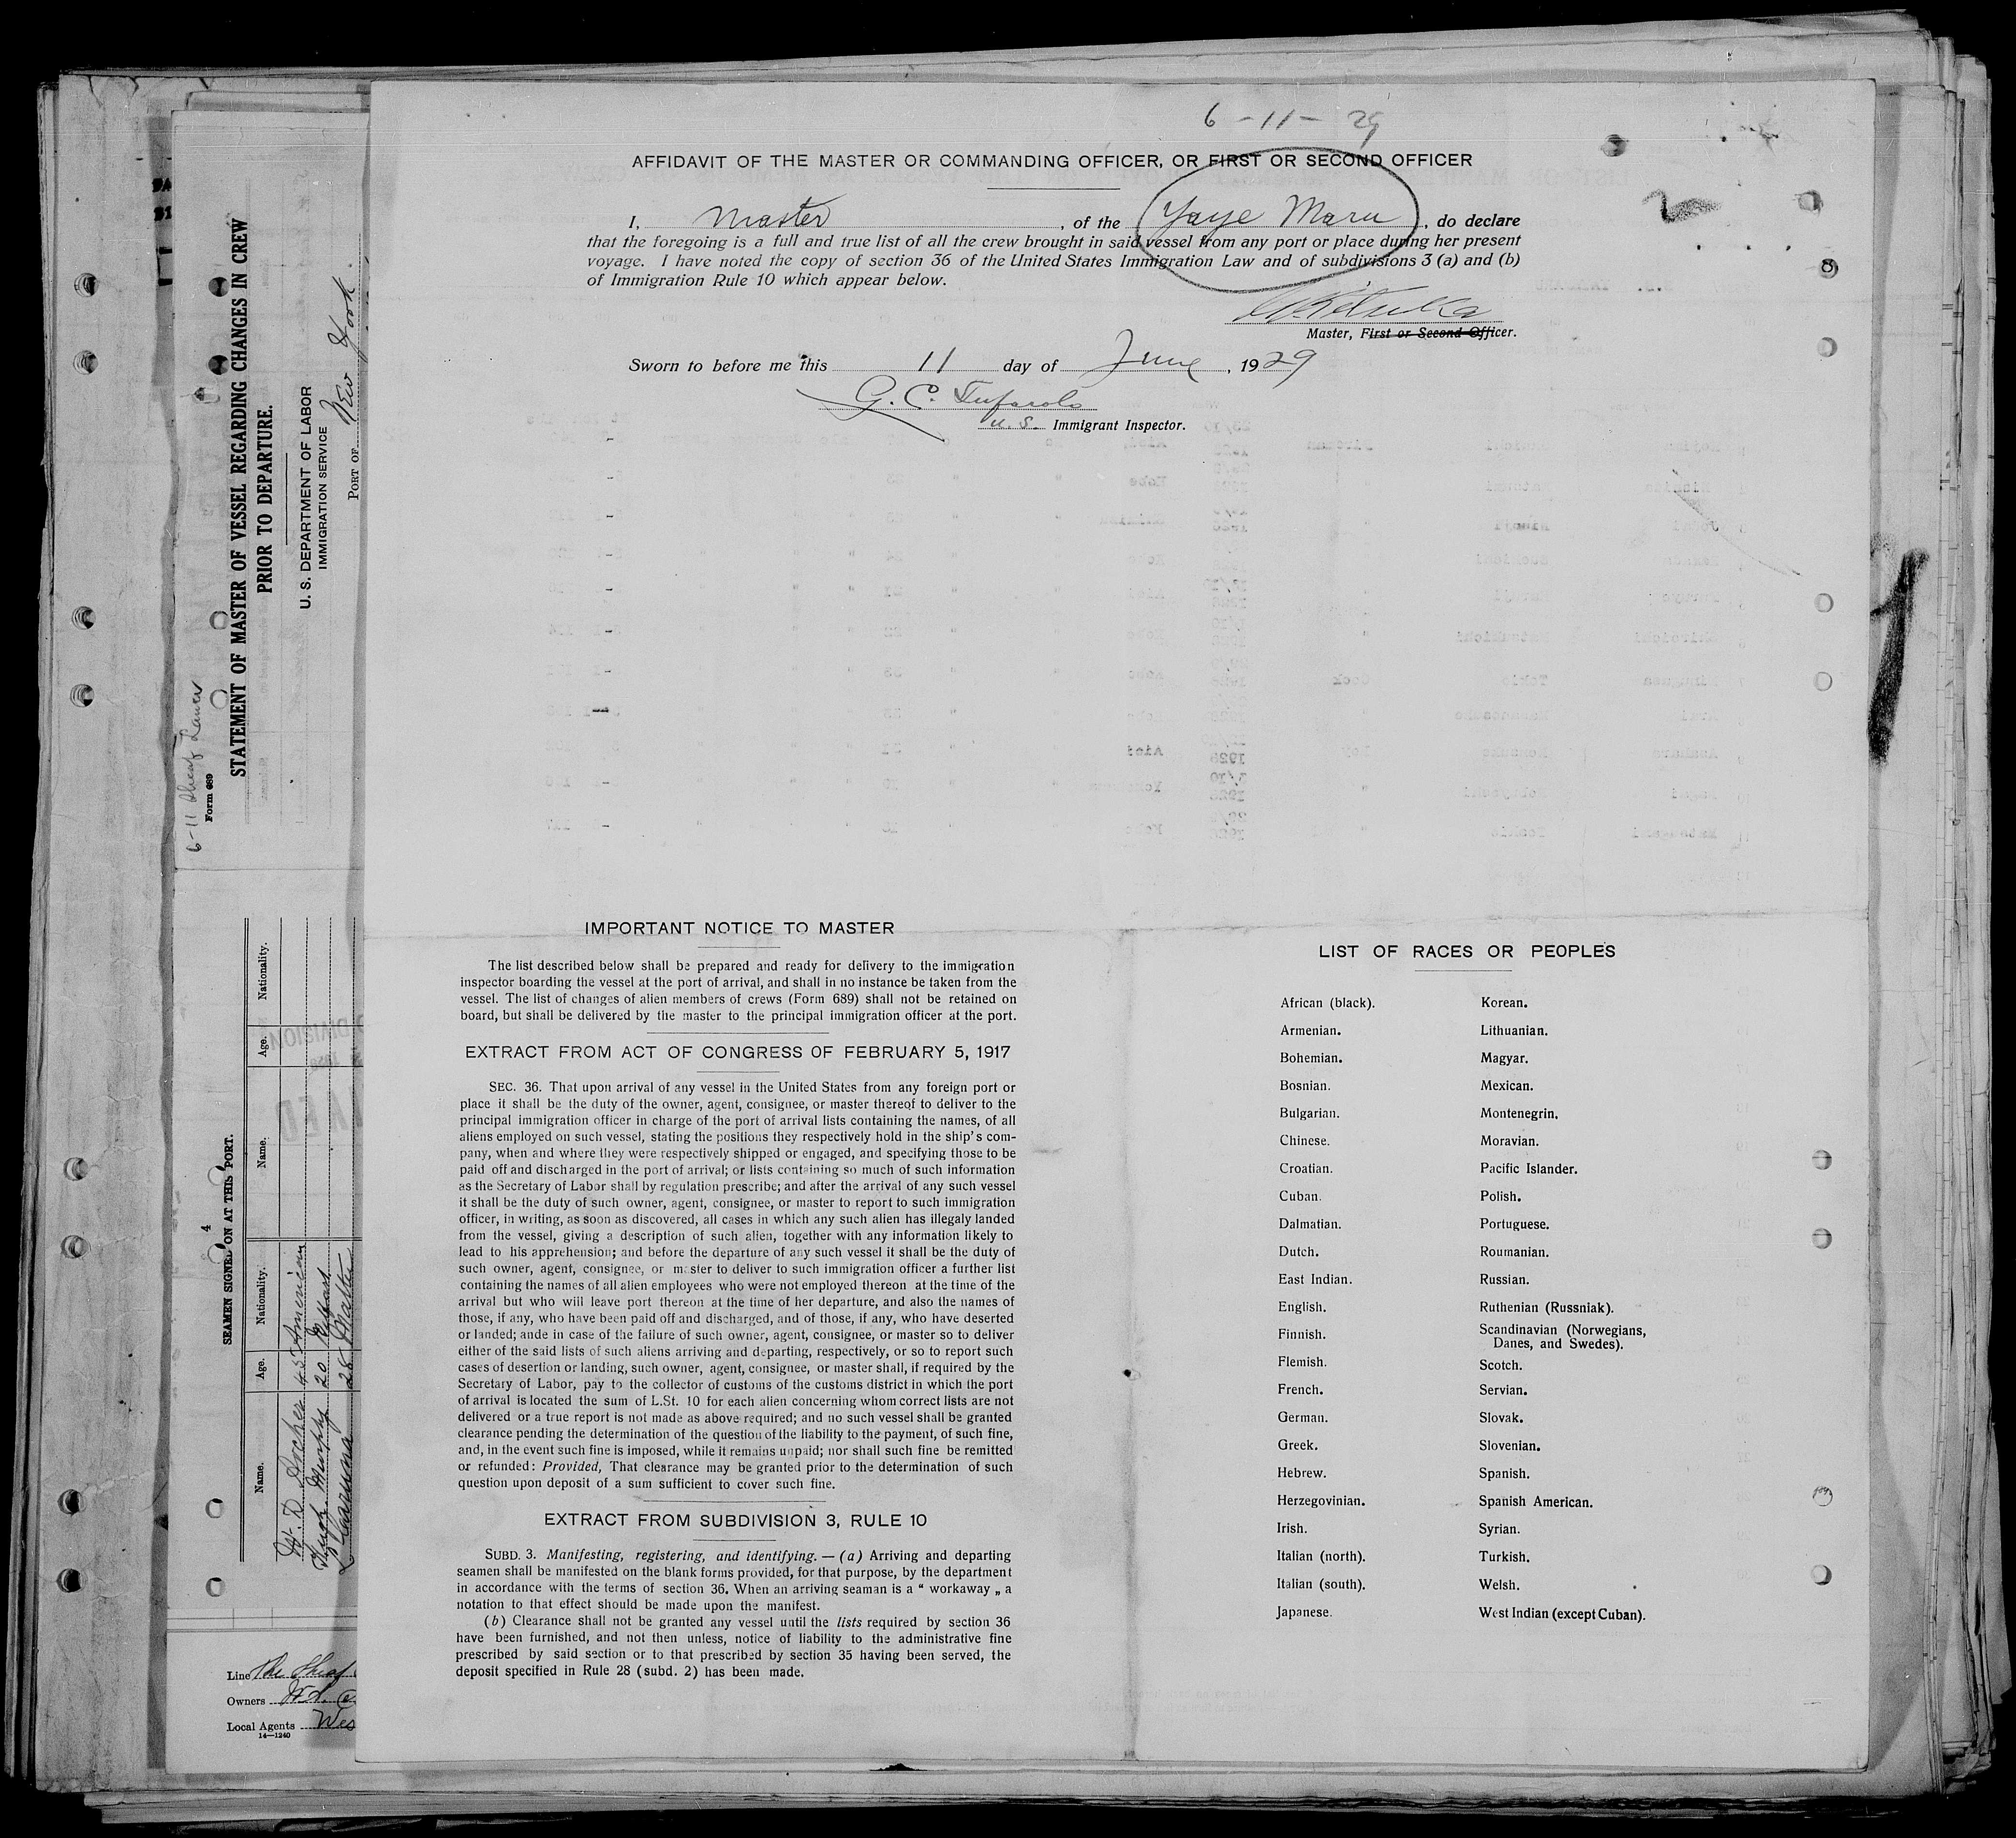 6 - 11 - 29
AFFIDAVIT OF THE MASTER OR COMMANDING OFFICER, OR FIRST OR SECOND OFFICER
I, Master, of the Yaye Maru, do declare
that the foregoing is a full and true list of all the crew brought in said vessel from any port or place during her present
voyage. I have noted the copy of section 36 of the United States Immigration Law and of subdivisions 3 (a) and (b)
of Immigration Rule 10 which appear below.
Master, First or Second Officer.
Sworn to before me this 11 day of June, 1929
G. C.
U. S. Immigrant Inspector.
IMPORTANT NOTICE TO MASTER
The list described below shall be prepared and ready for delivery to the immigration
inspector boarding the vessel at the port of arrival, and shall in no instance be taken from the
vessel. The list of changes of alien members of crews (Form 689) shall not be retained on
board, but shall be delivered by the master to the principal immigration officer at the port.
EXTRACT FROM ACT OF CONGRESS OF FEBRUARY 5, 1917
SEC. 36. That upon arrival of any vessel in the United States from any foreign port or
place it shall be the duty of the owner, agent, consignee, or master thereof to deliver to the
principal immigration officer in charge of the port of arrival lists containing the names, of all
aliens employed on such vessel, stating the positions they respectively hold in the ship's com-
pany, when and where they were respectively shipped or engaged, and specifying those to be
paid off and discharged in the port of arrival; or lists containing so much of such information
as the Secretary of Labor shall by regulation prescribe; and after the arrival of any such vessel
it shall be the duty of such owner, agent, consignee, or master to report to such immigration
officer, in writing, as soon as discovered, all cases in which any such alien has illegaly landed
from the vessel, giving a description of such alien, together with any information likely to
lead to his apprehension; and before the departure of any such vessel it shall be the duty of
such owner, agent, consignee, or master to deliver to such immigration officer a further list
containing the names of all alien employees who were not employed thereon at the time of the
arrival but who will leave port thereon at the time of her departure, and also the names of
those, if any, who have been paid off and discharged, and of those, if any, who have deserted
or landed; ande in case of the failure of such owner, agent, consignee, or master so to deliver
either of the said lists of such aliens arriving and departing, respectively, or so to report such
cases of desertion or landing, such owner, agent, consignee, or master shall, if required by the
Secretary of Labor, pay to the collector of customs of the customs district in which the port
of arrival is located the sum of L.St. 10 for each alien concerning whom correct lists are not
delivered or a true report is not made as above required; and no such vessel shall be granted
clearance pending the determination of the question of the liability to the payment, of such fine,
and, in the event such fine is imposed, while it remains unpaid; nor shall such fine be remitted
or refunded: Provided, That clearance may be granted prior to the determination of such
question upon deposit of a sum sufficient to cover such fine.
EXTRACT FROM SUBDIVISION 3, RULE 10
SUBD. 3. Manifesting, registering, and identifying. — (a) Arriving and departing
seamen shall be manifested on the blank forms provided, for that purpose, by the department
in accordance with the terms of section 36. When an arriving seaman is a “ workaway „ a
notation to that effect should be made upon the manifest.
(b) Clearance shall not be granted any vessel until the lists required by section 36
have been furnished, and not then unless, notice of liability to the administrative fine
prescribed by said section or to that prescribed by section 35 having been served, the
deposit specified in Rule 28 (subd. 2) has been made.
LIST OF RACES OR PEOPLES
African (black).
Armenian.
Bohemian.
Bosnian.
Bulgarian.
Chinese.
Croatian.
Cuban.
Dalmatian.
Dutch.
East Indian.
English.
Finnish.
Flemish.
French.
German.
Greek.
Hebrew.
Herzegovinian.
Irish.
Italian (north).
Italian (south).
Japanese.
Korean.
Lithuanian.
Magyar.
Mexican.
Montenegrin.
Moravian.
Pacific Islander.
Polish.
Portuguese.
Roumanian.
Russian.
Ruthenian (Russniak).
Scandinavian (Norwegians,
Danes, and Swedes).
Scotch.
Servian.
Slovak.
Slovenian.
Spanish.
Spanish American.
Syrian.
Turkish.
Welsh.
West Indian (except Cuban).
6-11 Sheaf Lance
Form 689
STATEMENT OF MASTER OF VESSEL REGARDING CHANGES IN CREW
PRIOR TO DEPARTURE.
U. S. DEPARTMENT OF LABOR
IMMIGRATION SERVICE
PORT OF New York
4
SEAMEN SIGNED ON AT THIS PORT.
Name. Age. Nationality. Name. Age. Nationality.
W. D. Archer 45 American
Hugh Murphy 20 Belfast
28 Malta
Line The Sheaf
Owners
Local Agents Wes
14—1240